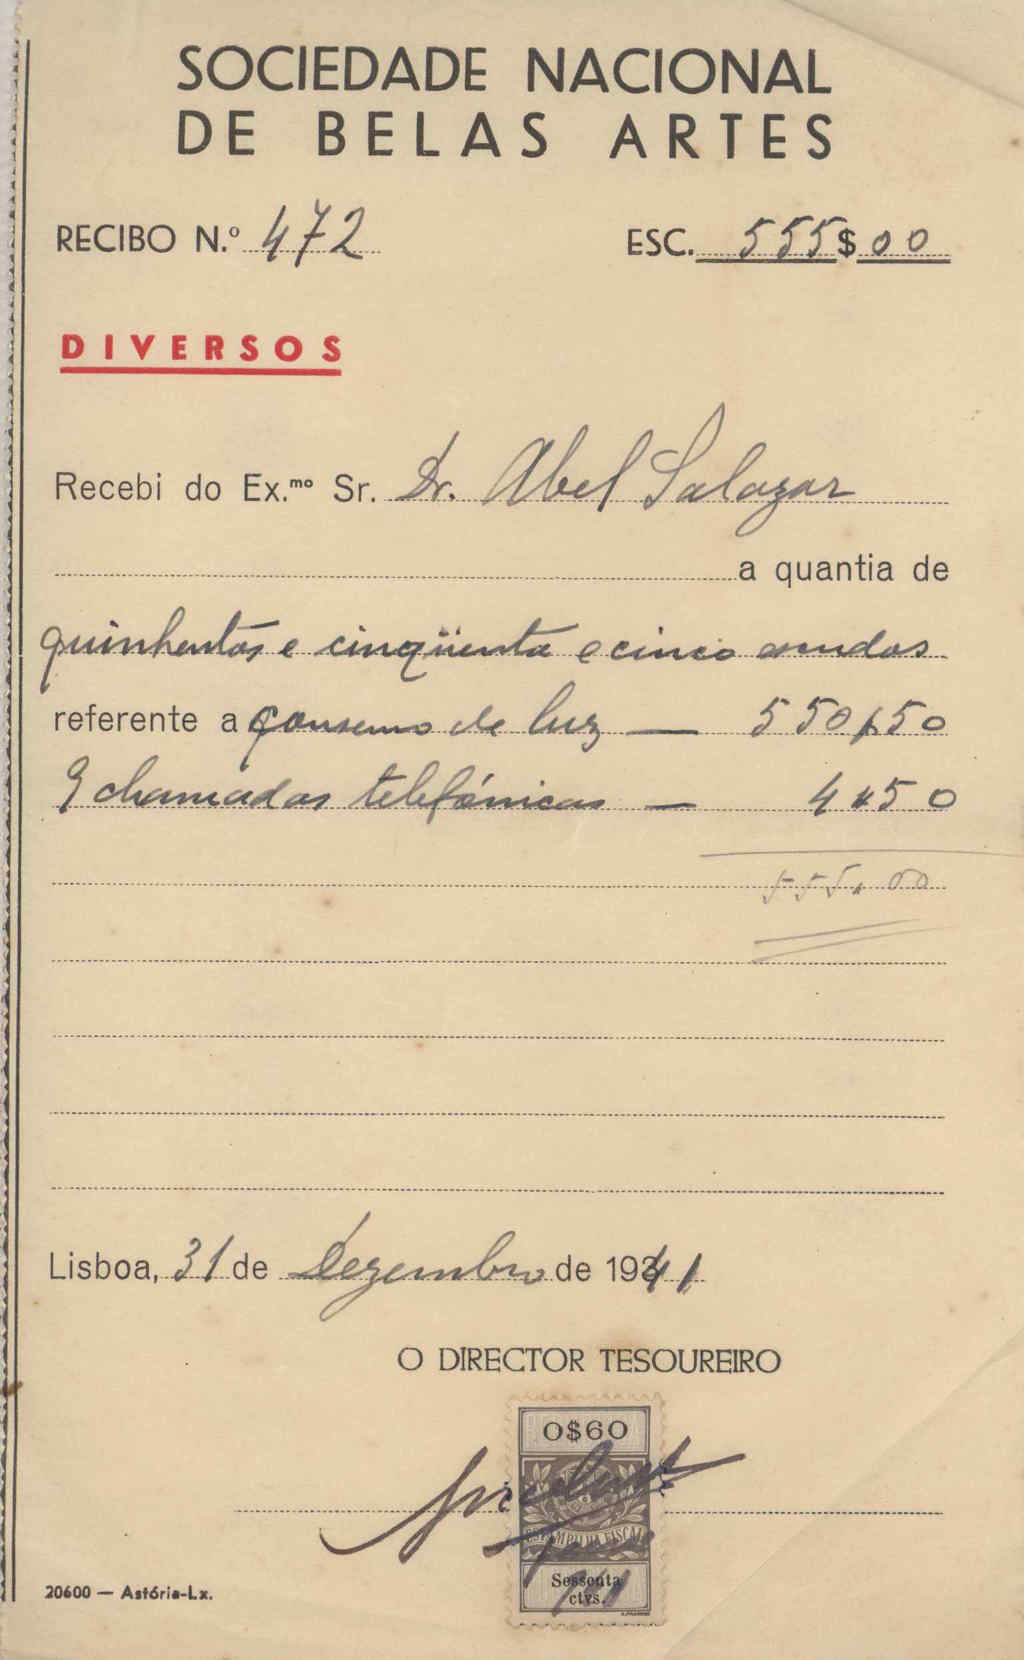 SOCIEDADE NACIONAL
DE BELAS ARTES
RECIBO N.º 472 ESC. 555$00
DIVERSOS
Recebi do Ex.mo Sr. Dr. Abel Salazar
a quantia de
quinhentos e cinqüenta e cinco escudos
referente a consumo de luz — 550$50
9 chamadas telefónicas — 4"50
555.00
Lisboa, 31 de Dezembro de 1941
O DIRECTOR TESOUREIRO
0$60
ESTAMPILHA FISCAL
Sessenta
ctvs.
20600 — Astória-Lx.